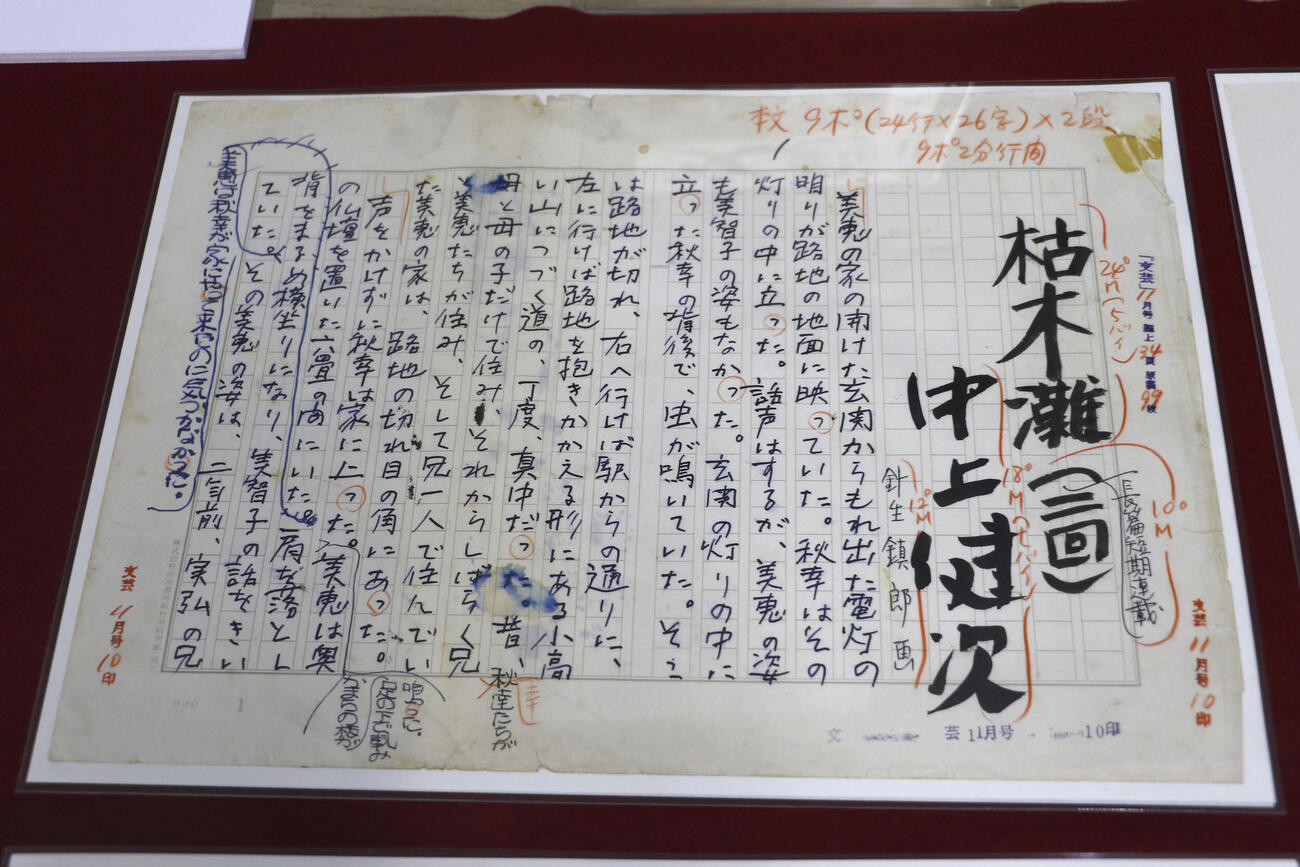 本文 9ポ(24行×26字)×2段
9ポ2分行間
「文芸」11月号 編上 134頁 原稿 99枚
24ºM(5バイ)
枯木灘(二回)
長篇短期連載
10ºM
中上健次
18ºM
針生鎮郎画
12ºM
美恵の家の開けた玄関からもれ出た電灯の
明りが路地の地面に映っていた。秋幸はその
灯りの中に立った。話声はするが、美恵の姿
も美智子の姿もなかった。玄関の灯りの中に
立った秋幸の背後で、虫が鳴いていた。そこ
は路地が切れ、右へ行けば駅からの通りに、
左に行けば路地を抱きかかえる形にある小高
い山につづく道の、丁度、真中だった。昔、秋幸たちが
母と母の子だけで住み、それからしばらく兄
と美恵たちが住み、そして兄一人で住んでい
た美恵の家は、路地の切れ目の角にあった。
声をかけずに秋幸は家に上った。美恵は奥
の仏壇を置いた六畳の間にいた。肩を落とし
背をまるめ横坐りになり、美智子の話をきい
ていた。その美恵の姿は、二年前、実弘の兄
美恵は秋幸が家にやって来たのに気づかなかった。
文芸 11月号 10印
文芸 11月号 10印
文芸 11月号 10印
1